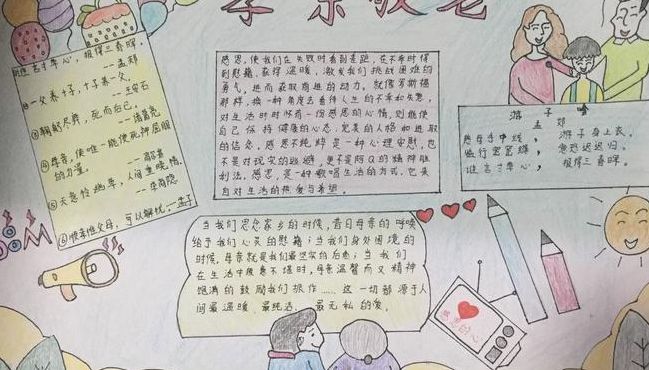 孝亲敬老
谁言寸草心，报得三春晖。
---孟郊
②一父养十子，十子养一父。
---王安石
③鞠躬尽瘁，死而后已。
---诸葛亮
④母爱，使唯一能使死神屈服
的力量。
---高尔基
⑤天意怜幽草，人间重晚情。
---李商隐
⑥惟孝惟父母，可以解忧。---孟子
感恩，使我们在失败时看到差距，在不幸时得
到慰藉、获得温暖，激发我们挑战困难的
勇气，进而获取前进的动力。就像罗斯福
那样，换一种角度去看待人生的不幸和失意，
对生活时时怀有一份感恩的心情，则能使
自己保持健康的心态，完美的人格和进取
的信念。感恩不纯粹是一种心理安慰，也
不是对现实的逃避，更不是阿Q的精神胜
利法。感恩，是一种歌唱生活的方式，它来
自对生活的热爱与希望。
当我们思念家乡的时候，昔日母亲的呼唤
给予我们心灵的慰藉；当我们身处困境的
时候，母亲就是我们最坚实的后盾；当我们
在生活中疲惫不堪时，母亲温馨而又精神
饱满的鼓励我们振作……这一切都源于人
间最温暖、最纯洁、最无私的爱。
游子吟
孟郊
慈母手中线，游子身上衣。
临行密密缝，意恐迟迟归。
谁言寸草心，报得三春晖。
感恩的心